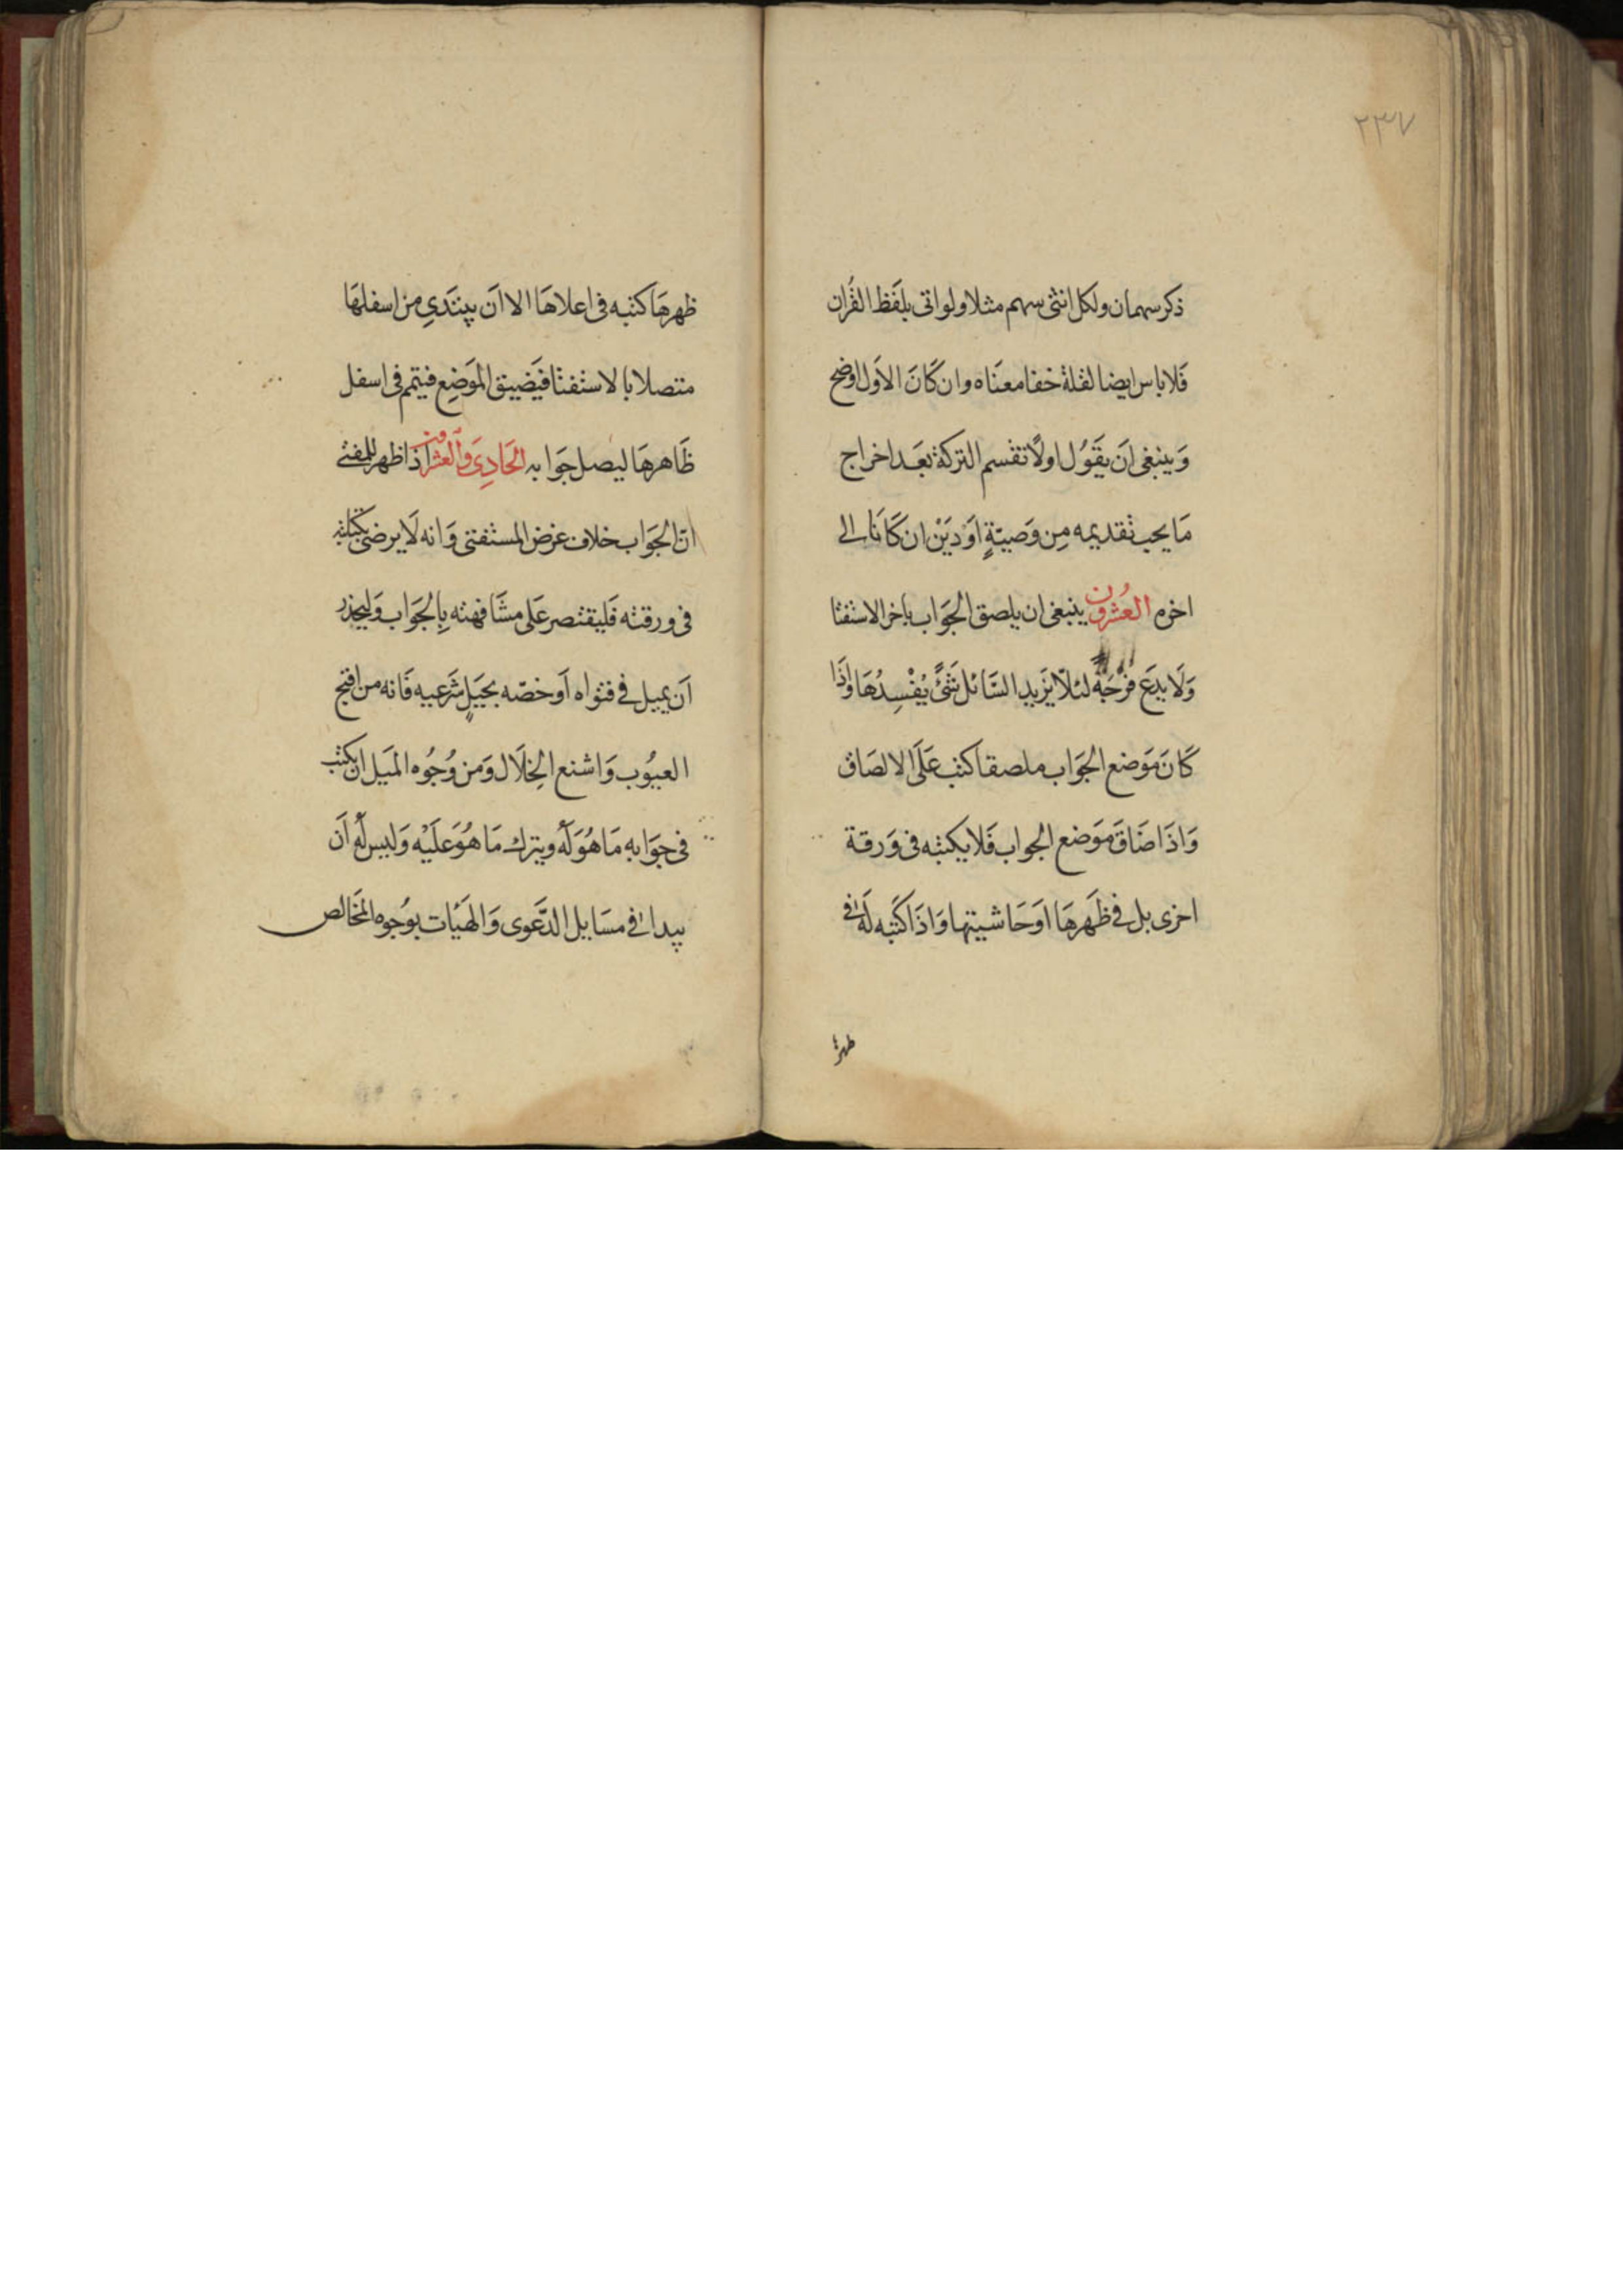 ٢٣٧
ذكر سهمان ولكل انثى سهم مثلا ولو اتى بلفظ القرآن
فَلا باس ايضا لقلة خفا معنَاه وان كَانَ الاَول اوضح
وَينبغى اَن يقَوُل اولًا تقسم التركة بعَد اخراج
مَا يجب تقديمه مِن وَصيّةٍ اَو دَيْن ان كَانَا الى
اخره العُشرون ينبغى ان يلصق الجوَاب باخر الاستفتا
وَلَا يدَع فُرْجَةً لئلّا يَزيد السَّائل شَئً يُفْسِدُهَا وَاذَا
كَانَ مَوَضع الجوَاب ملصقا كتب عَلَى الالصَاق
وَاذَا ضَاقَ مَوَضع الجواب فَلا يكتبه فى وَرقة
اخرى بل فى ظَهرهَا اوَ حَاشيتها وَاذَا كتَبه لَه فى
ظهرها
ظهرهَا كتبه فى اعلاهَا الا اَن يبتَدى من اسفلهَا
متصلا بالاستفتا فيَضيق الموَضِع فيتم فى اسفل
ظَاهرهَا ليصل جوَابه الحَادِىَ والعشرون اذا ظهر للمفتى
ان الجوَاب خلاف غرض المستفتى وَانه لَا يرضى بكتابته
فى ورقته فَليقتصر عَلى مشَافهته بِالجَواب وَليحذر
اَن يميل فى فتواه اَو خصّه بحيَلٍ شَرعيه فَانه من اقبح
العيوُب وَاشنع الخِلَال وَمن وُجُوه الميَل ان يكتب
فى جوَابهِ مَا هُوَ لَهُ ويترك مَا هُوَ عَليْه وَليس لَهُ اَن
يبدا فى مسَايل الدَّعَوى وَالهَيْات بوُجوه المخَالص